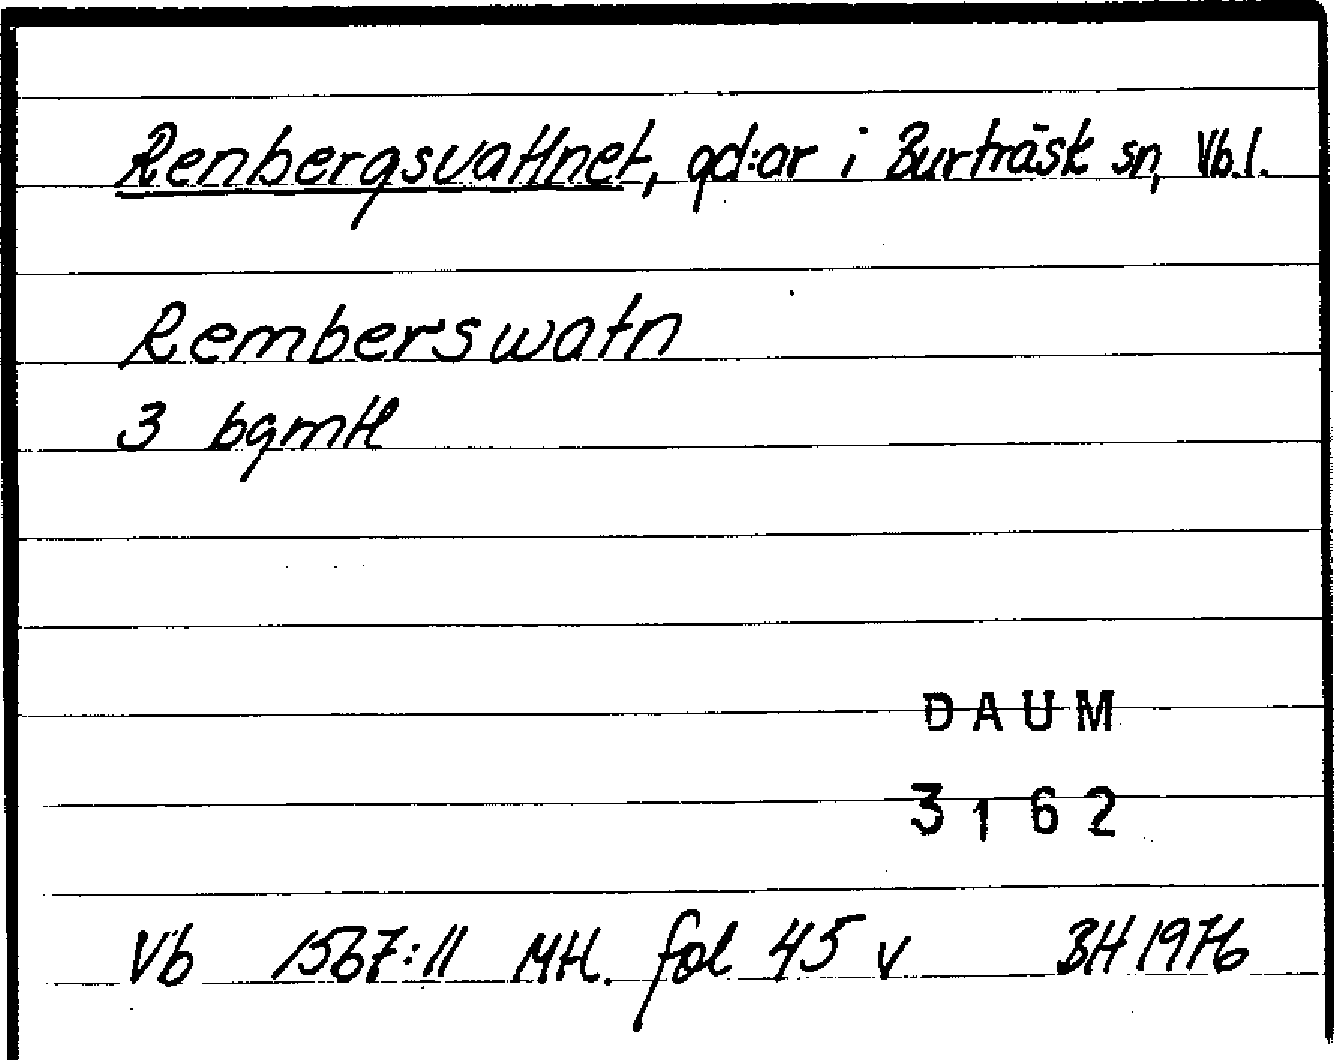 Renbergsvattnet, gd:ar i Burträsk sn, Vb.l.
Remberswatn
3 bgmtl
DAUM
3162
Vb 1567:11 Mtl. fol 45 v BH 1976